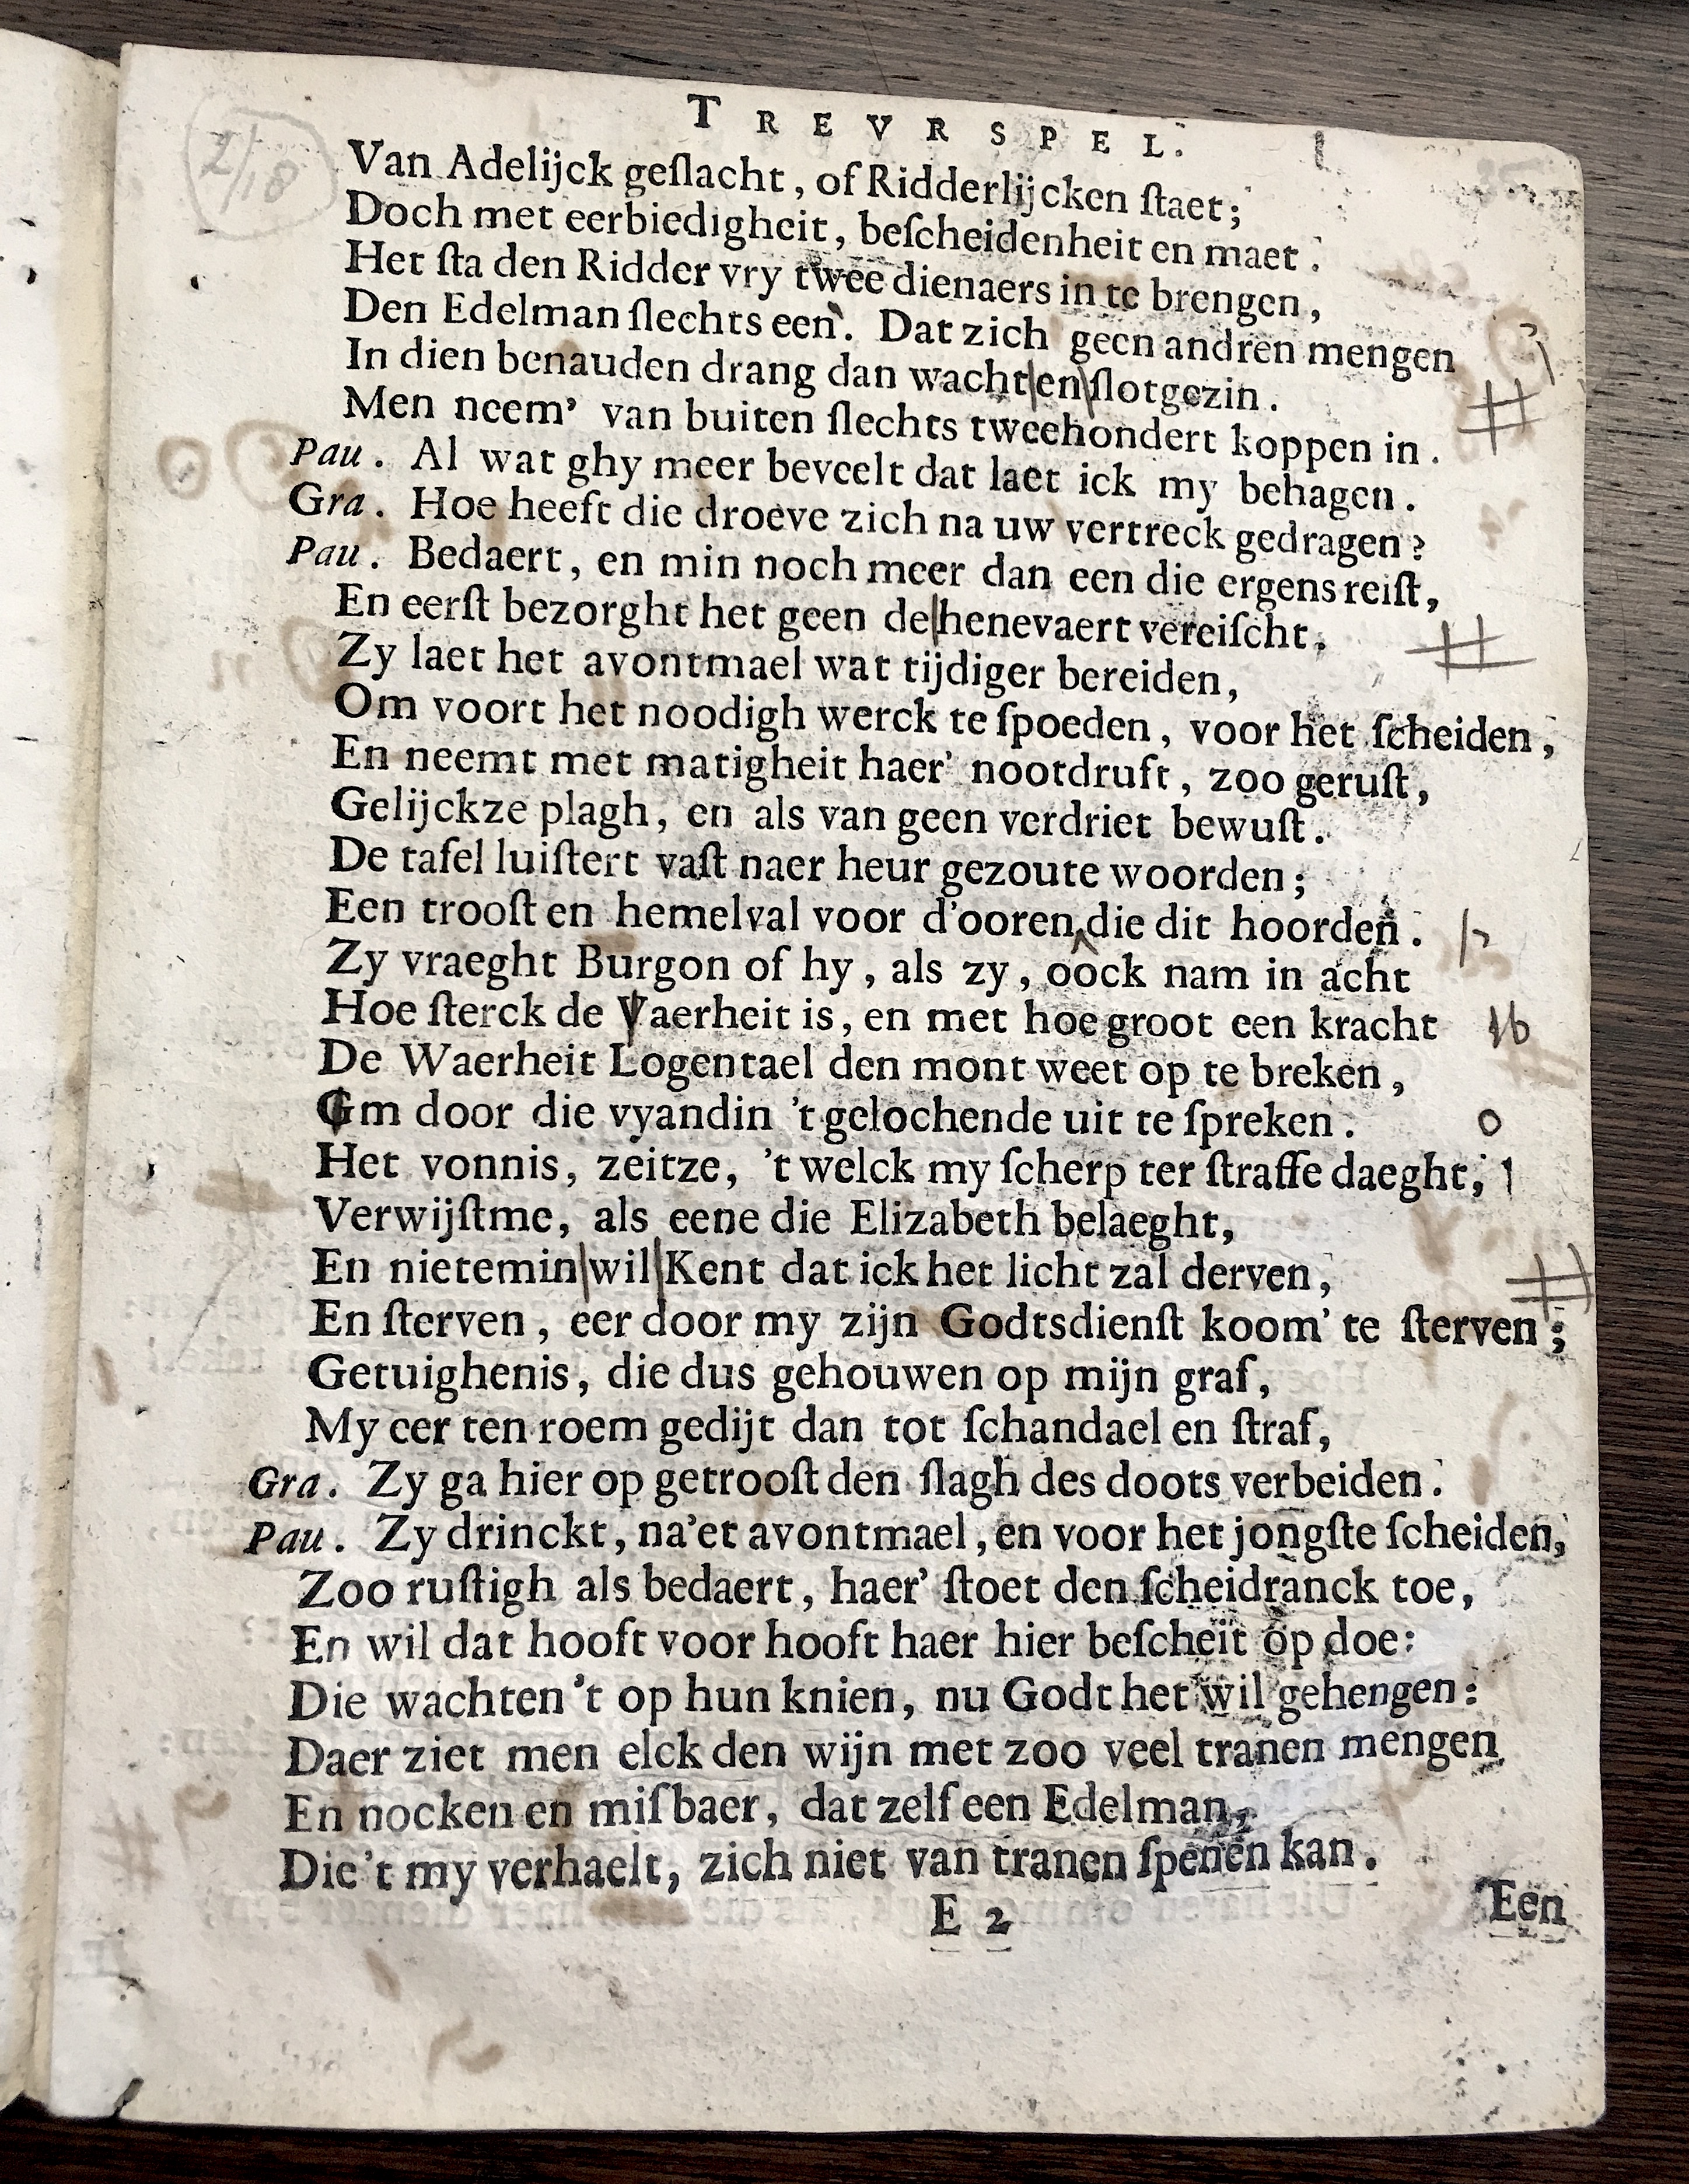 TREVRSPEL.
Van Adelijck geſlacht, of Ridderlijcken ſtaet;
Doch met eerbiedigheit, beſcheidenheit en maet.
Het ſta den Ridder vry twee dienaers in te brengen,
Den Edelman ſlechts een. Dat zich geen andren mengen
In dien benauden drang dan wacht|en|ſlotgezin. #
Men neem' van buiten ſlechts tweehondert koppen in.
Pau. Al wat ghy meer beveelt dat laet ick my behagen.
Gra. Hoe heeft die droeve zich na uw vertreck gedragen?
Pau. Bedaert, en min noch meer dan een die ergens reiſt,
En eerſt bezorght het geen de|henevaert vereiſcht. #
Zy laet het avontmael wat tijdiger bereiden,
Om voort het noodigh werck te ſpoeden, voor het ſcheiden,
En neemt met matigheit haer' nootdruft, zoo geruſt,
Gelijckze plagh, en als van geen verdriet bewuſt.
De tafel luiſtert vaſt naer heur gezoute woorden;
Een trooſt en hemelval voor d'ooren‸die dit hoorden.
Zy vraeght Burgon of hy, als zy, oock nam in acht
Hoe ſterck de Vaerheit is, en met hoe groot een kracht
De Waerheit Logentael den mont weet op te breken,
Gm door die vyandin 't gelochende uit te ſpreken. o
Het vonnis, zeitze, 't welck my ſcherp ter ſtraffe daeght,
Verwijſtme, als eene die Elizabeth belaeght,
En nietemin|wil|Kent dat ick het licht zal derven, #
En ſterven, eer door my zijn Godtsdienſt koom' te ſterven;
Getuighenis, die dus gehouwen op mijn graf,
My eer ten roem gedijt dan tot ſchandael en ſtraf,
Gra. Zy ga hier op getrooſt den ſlagh des doots verbeiden.
Pau. Zy drinckt, na'et avontmael, en voor het jongſte ſcheiden,
Zoo ruſtigh als bedaert, haer' ſtoet den ſcheidranck toe,
En wil dat hooft voor hooft haer hier beſcheit op doe:
Die wachten't op hun knien, nu Godt het wil gehengen:
Daer ziet men elck den wijn met zoo veel tranen mengen
En nocken en miſbaer, dat zelf een Edelman,
Die't my verhaelt, zich niet van tranen ſpenen kan.
E 2
Een